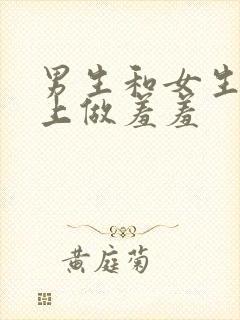 男生和女生
上做羞羞
黄庭菊